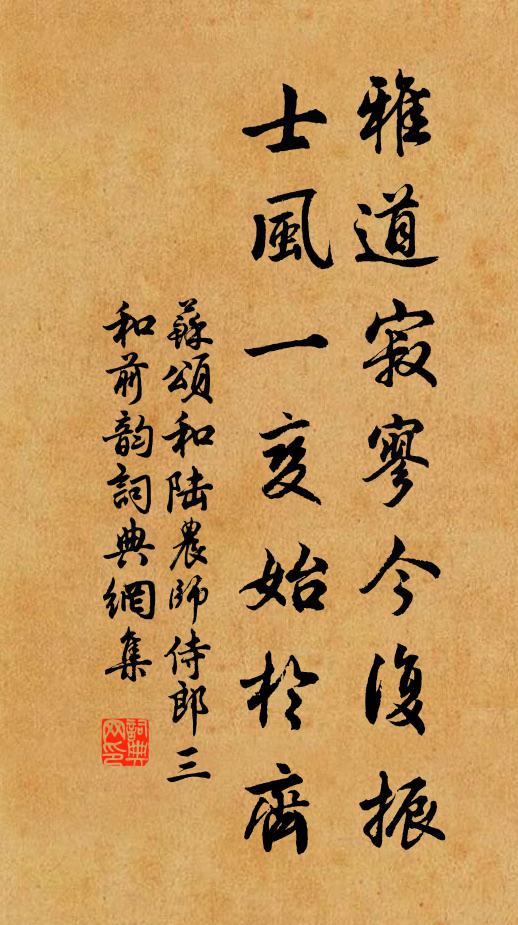 雅道寂寥今復振
士風一变始於齊
蘇頌和陸農師侍郎三
和前韵詞典網集
詞典網印